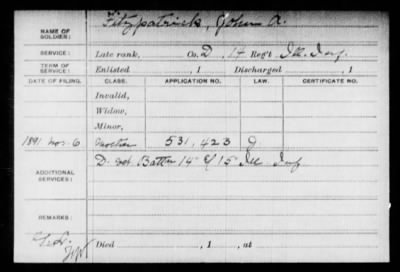 Fitzpatrick, John A.
NAME OF SOLDIER:
SERVICE: Late rank, Co. D, 14 Reg't Ill. Inf.
TERM OF SERVICE: Enlisted , 1 Discharged , 1
DATE OF FILING. CLASS. APPLICATION NO. LAW. CERTIFICATE NO.
Invalid,
Widow,
Minor,
1891 Nov. 6 Mother 531,423 J
ADDITIONAL SERVICES: D. Vet. Battn 14" & 15" Ill Inf
REMARKS:
Died , 1 , at